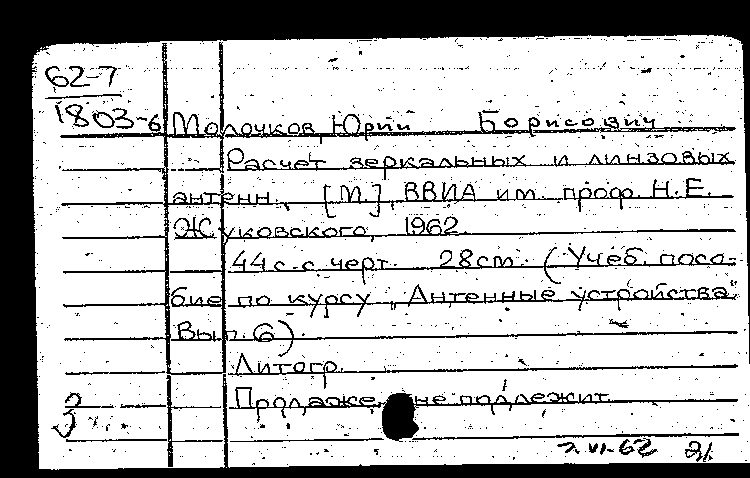 62-7
1803-6 Молочков, Юрий Борисович
Расчет зеркальных и линзовых
антенн. [М.], ВВИА им. проф. Н.Е.
Жуковского, 1962.
44 с. с черт. 28 cm. (Учеб. посо-
бие по курсу "Антенные устройства"
Вып. 6).
Литогр.
Продаже не подлежит
7.VI-62